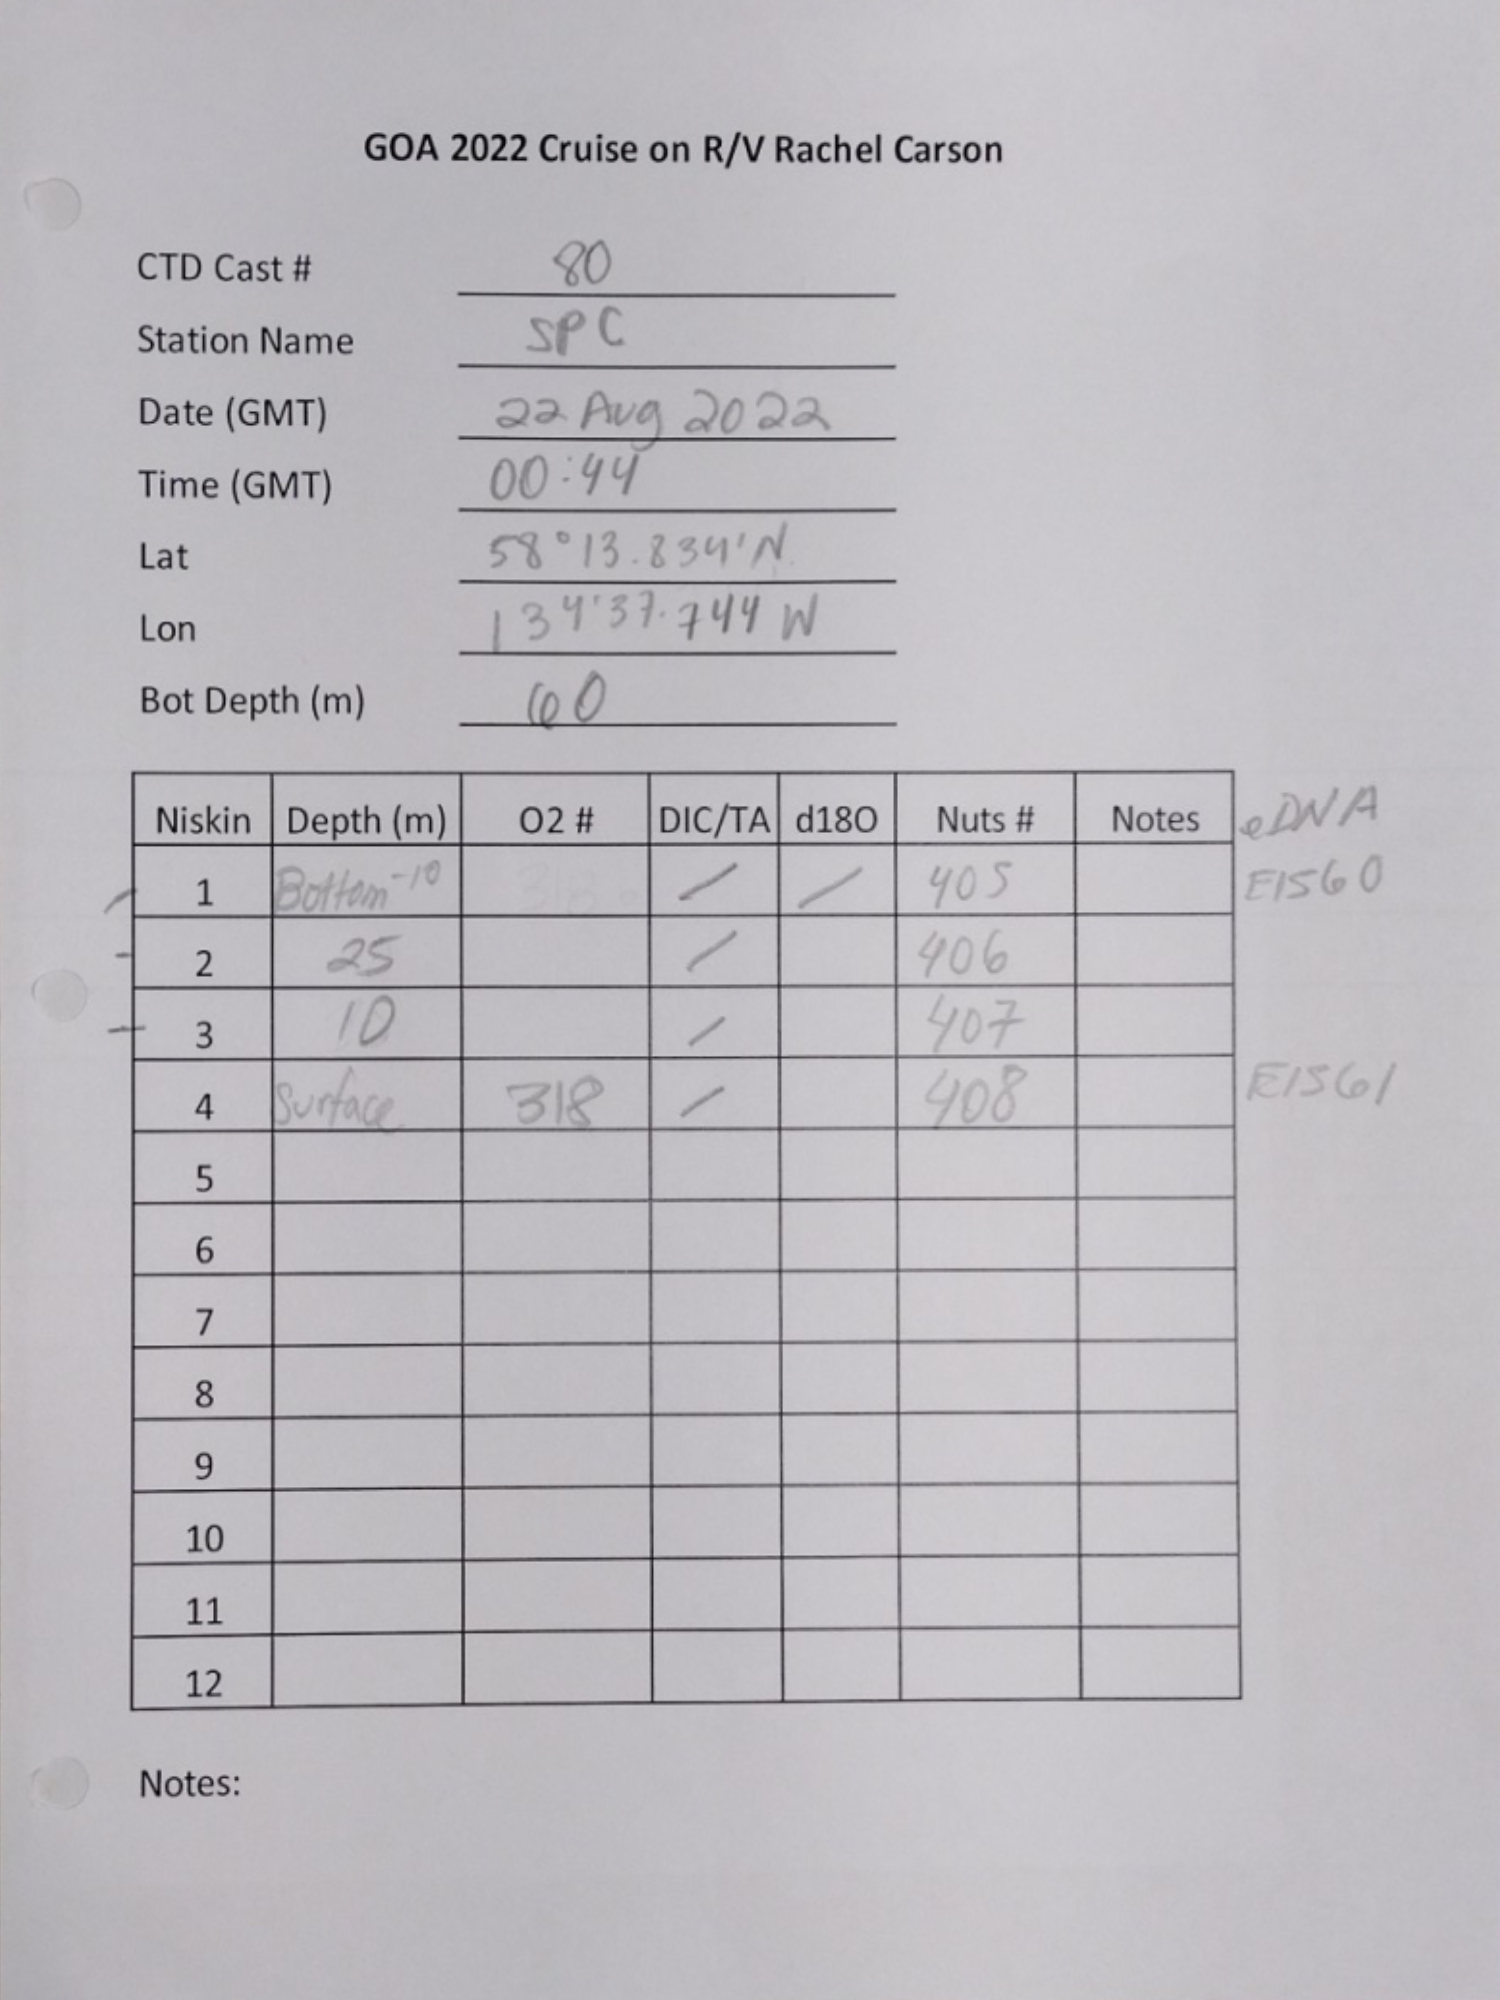 GOA 2022 Cruise on R/V Rachel Carson
CTD Cast # 80
Station Name SPC
Date (GMT) 22 Aug 2022
Time (GMT) 00:44
Lat 58°13.834'N
Lon 134°37.744 W
Bot Depth (m) 60
Niskin Depth (m) O2 # DIC/TA d18O Nuts # Notes eDNA
1 Bottom -10 / / 405 E1560
2 25 / 406
3 10 / 407
4 Surface 318 / 408 E1561
5
6
7
8
9
10
11
12
Notes: